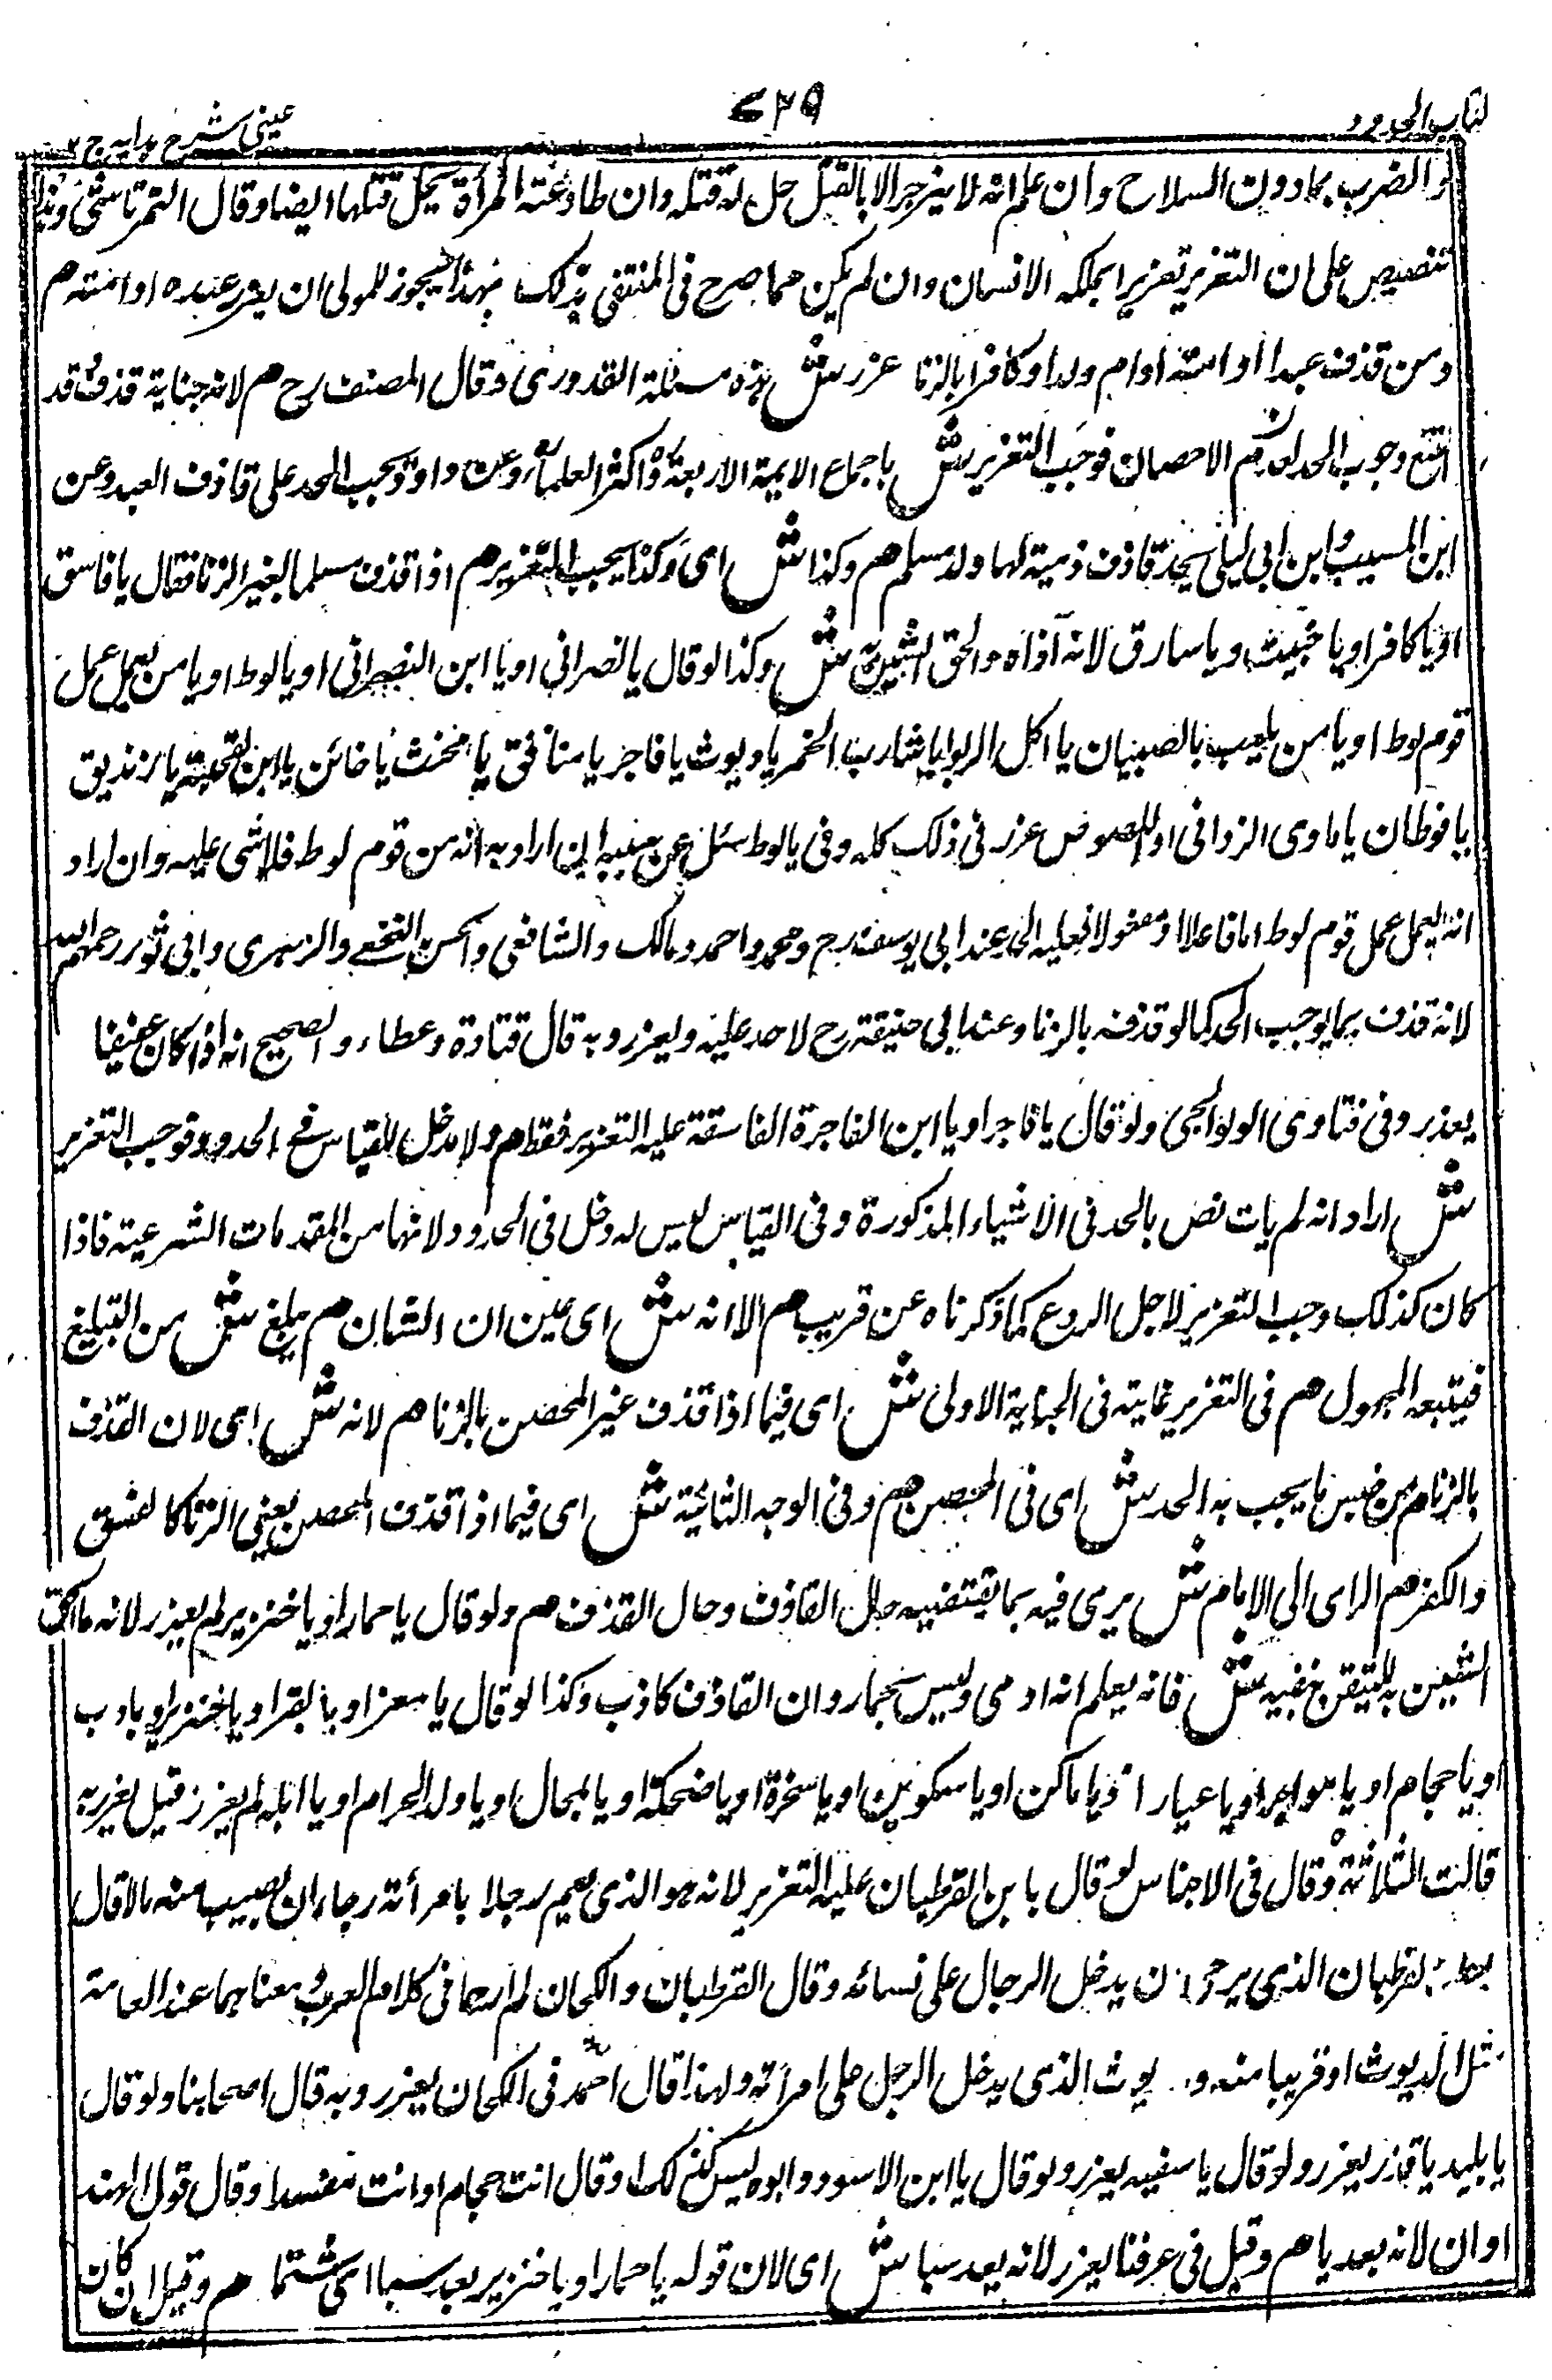 كتاب الحدود
٧٢٩
عينى شرح هدايه ج ٢
والضرب بما دون السلاح وان علم انه لا ينزجر الا بالقتل حل له قتله وان طاوعته المرأة يحل قتلها ايضا وقال التمرتاشى وهذا
تنصيص على ان التعزير تعزير ايملكه الانسان وان لم يكن محتسبا صرح فى المنتقى بذلك بهذا يجوز للمولى ان يعزر عبده او امته هم
ومن قذف عبدا او امته او ام ولد او كافرا بالزنا عزر ش هذه مسئلة القدورى وقال المصنف رح هم لانه جناية قذف وقد
امتنع وجوب الحد لعدم الاحصان فوجب التعزير ش باجماع الايمة الاربعة واكثر العلماء وعن داود يجب الحد على قاذف العبد وعن
ابن المسيب وابن ابى ليلى يحد قاذف ذمية لها ولد مسلم هم وكذا ش اى وكذا يجب التعزير هم اذا قذف مسلما بغير الزنا فقال يا فاسق
او يا كافر او يا خبيث ويا سارق لانه آذاه والحق الشين به ش وكذا لو قال يا نصرانى او يا ابن النصرانى او يا لوط او يا من يعمل عمل
قوم لوط او يا من يلعب بالصبيان يا اكل الربوا يا شارب الخمر يا ديوث يا فاجر يا منافق يا مخنث يا خائن يا ابن القحبة يا زنديق
يا قوطان يا ماوى الزوانى او اللصوص عزر فى ذلك كله وفى يا لوط سئل عن نيته ان اراد به انه من قوم لوط فلا شى عليه وان اراد
انه يعمل عمل قوم لوط اما فاعلا او مفعولا فعليه الحد عند ابى يوسف رح ومحمد واحمد ومالك والشافعى والحسن والنخعى والزهرى وابى ثور رحمهم الله
لانه قذف بما يوجب الحد كما لو قذفه بالزنا وعند ابى حنيفة رح لا حد عليه ويعزر وبه قال قتادة وعطاء والصحيح انه اذا كان عفيفا
يعذر وفى فتاوى الولوالجى ولو قال يا فاجر او يا ابن الفاجرة الفاسقة عليه التعزير فقط هم ولا مدخل للقياس فى الحدود فوجب التعزير
ش اراد انه لم يات نص بالحد فى الاشياء المذكورة وفى القياس ليس له دخل فى الحدود لانها من المقدمات الشرعية فاذا
كان كذلك وجب التعزير لاجل الردع كما ذكرناه عن قريب هم الا انه ش اى غير ان الشان هم يبلغ ش من التبليغ
فيتبعه المجهول هم فى التعزير غايته فى الجناية الاولى ش اى فيما اذا قذف غير المحصن بالزنا هم لانه ش اى لان القذف
بالزنا هم من جنس ما يجب به الحد ش اى فى المحصن هم وفى الوجه الثانية ش اى فيما اذا قذف المحصن بغير الزنا كالفسق
والكفر هم الراى الى الامام ش يرى فيه بما يقتضيه حال القاذف وحال القذف هم ولو قال يا حمار او يا خنزير لم يعزر لانه ما الحق
الشين به للتيقن بنفيه ش فانه يعلم انه ادمى وليس بحمار وان القاذف كاذب وكذا لو قال يا معز او يا بقر او يا خنزير او يا دب
او يا حجام او يا مواجر او يا عيار او يا ناكس او يا سكونين او يا سخرة او يا ضحكة او يا محال او يا ولد الحرام او يا ابله لم يعزر قيل يعزر به
قالت الثلاثة وقال فى الاجناس لو قال يا بن القرطبان عليه التعزير لانه هو الذى يعم رجلا بامرأته رجاء ان يصيب منه مالا قال
القرطبان الذى يرضى ان يدخل الرجال على نسائه وقال القرطبان والكحان لم ارهما فى كلام العرب ومعناهما عند العامة
مثل الديوث او قريبا منه و ديوث الذى يدخل الرجل على امرأته ولهذا قال احمد فى الكحان يعزر وبه قال اصحابنا ولو قال
يا بليد يا قذر يعزر ولو قال يا سفيه يعزر ولو قال يا ابن الاسود وابوه ليس كذلك او قال انت حجام او انت مقسد او قال قول الهند
او ان لانه بعد يا هم وقيل فى عرفنا يعزر لانه يعد سبا ش اى لان قوله يا حمار او يا خنزير يعد سبا اى شتما هم وقيل ان كان